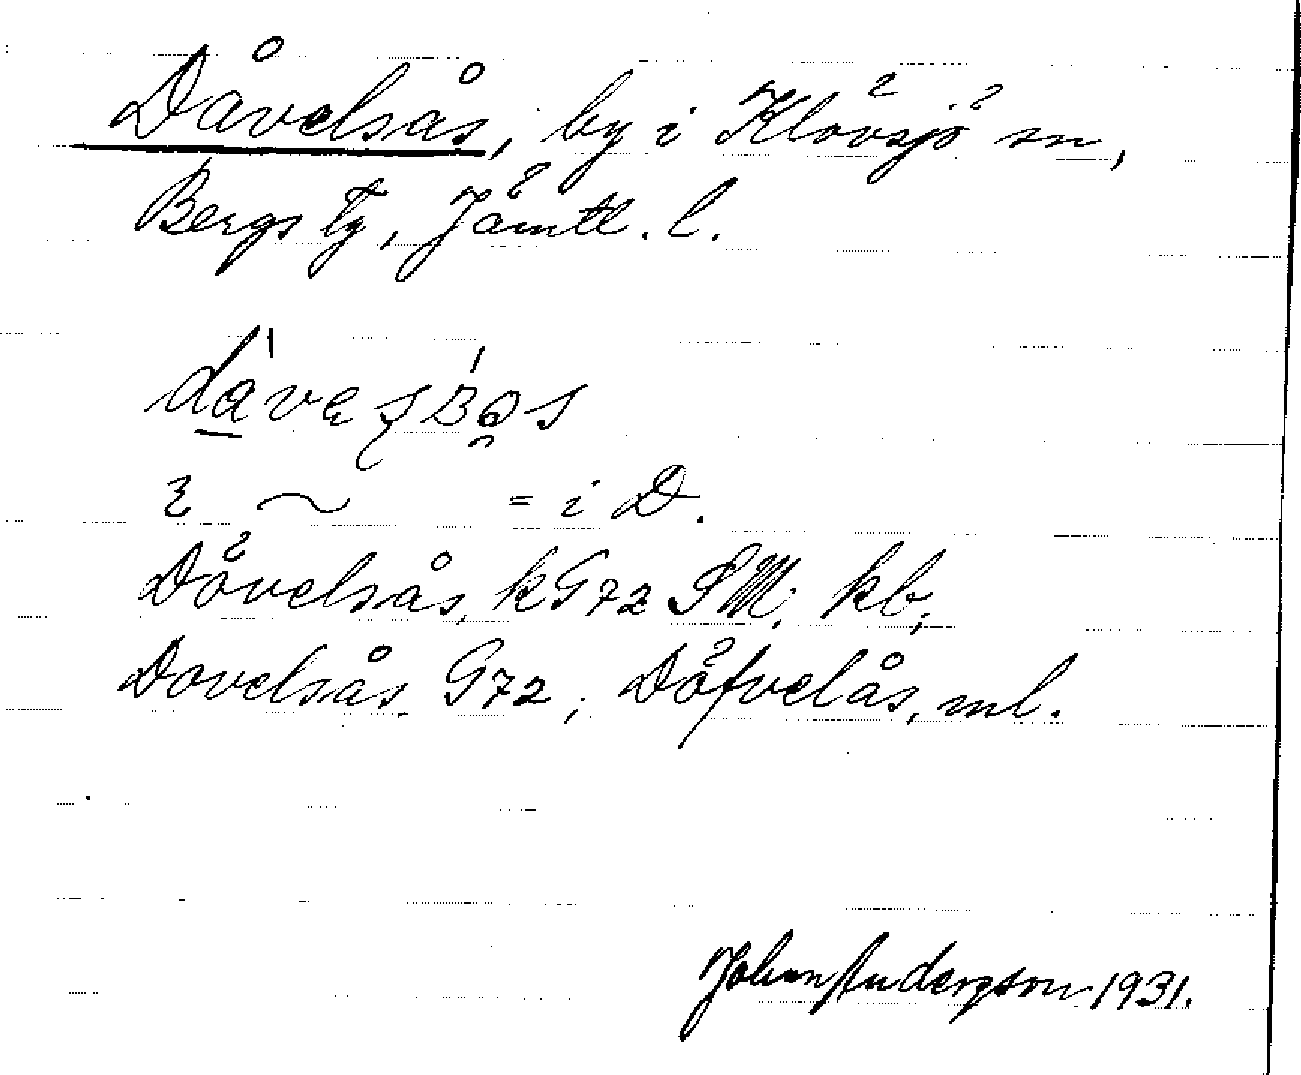 Dåvelsås, by i Klövsjö sn,
Bergs tg, Jämtl. l.
i ~ = i D.
Dövelsås, kG72 SM, kb;
Dovelsås G72; Döfvelås, ml.
Johan Anderzson 1931.